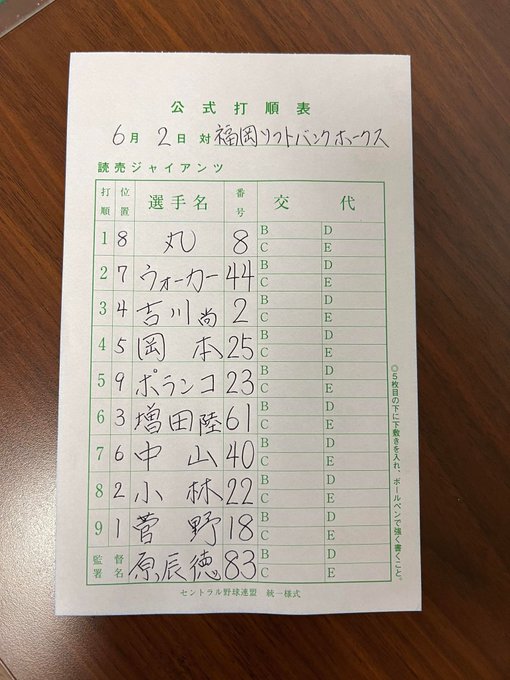 公式打順表
6月 2日 対 福岡ソフトバンクホークス
読売ジャイアンツ
打順 位置 選手名 番号 交代
1 8 丸 8 B D C E
2 7 ウォーカー 44 B D C E
3 4 吉川尚 2 B D C E
4 5 岡本 25 B D C E
5 9 ポランコ 23 B D C E
6 3 増田陸 61 B D C E
7 6 中山 40 B D C E
8 2 小林 22 B D C E
9 1 菅野 18 B D C E
監督署名 原辰徳 83 B D C E
◎5枚目の下に下敷きを入れ、ボールペンで強く書くこと。
セントラル野球連盟 統一様式